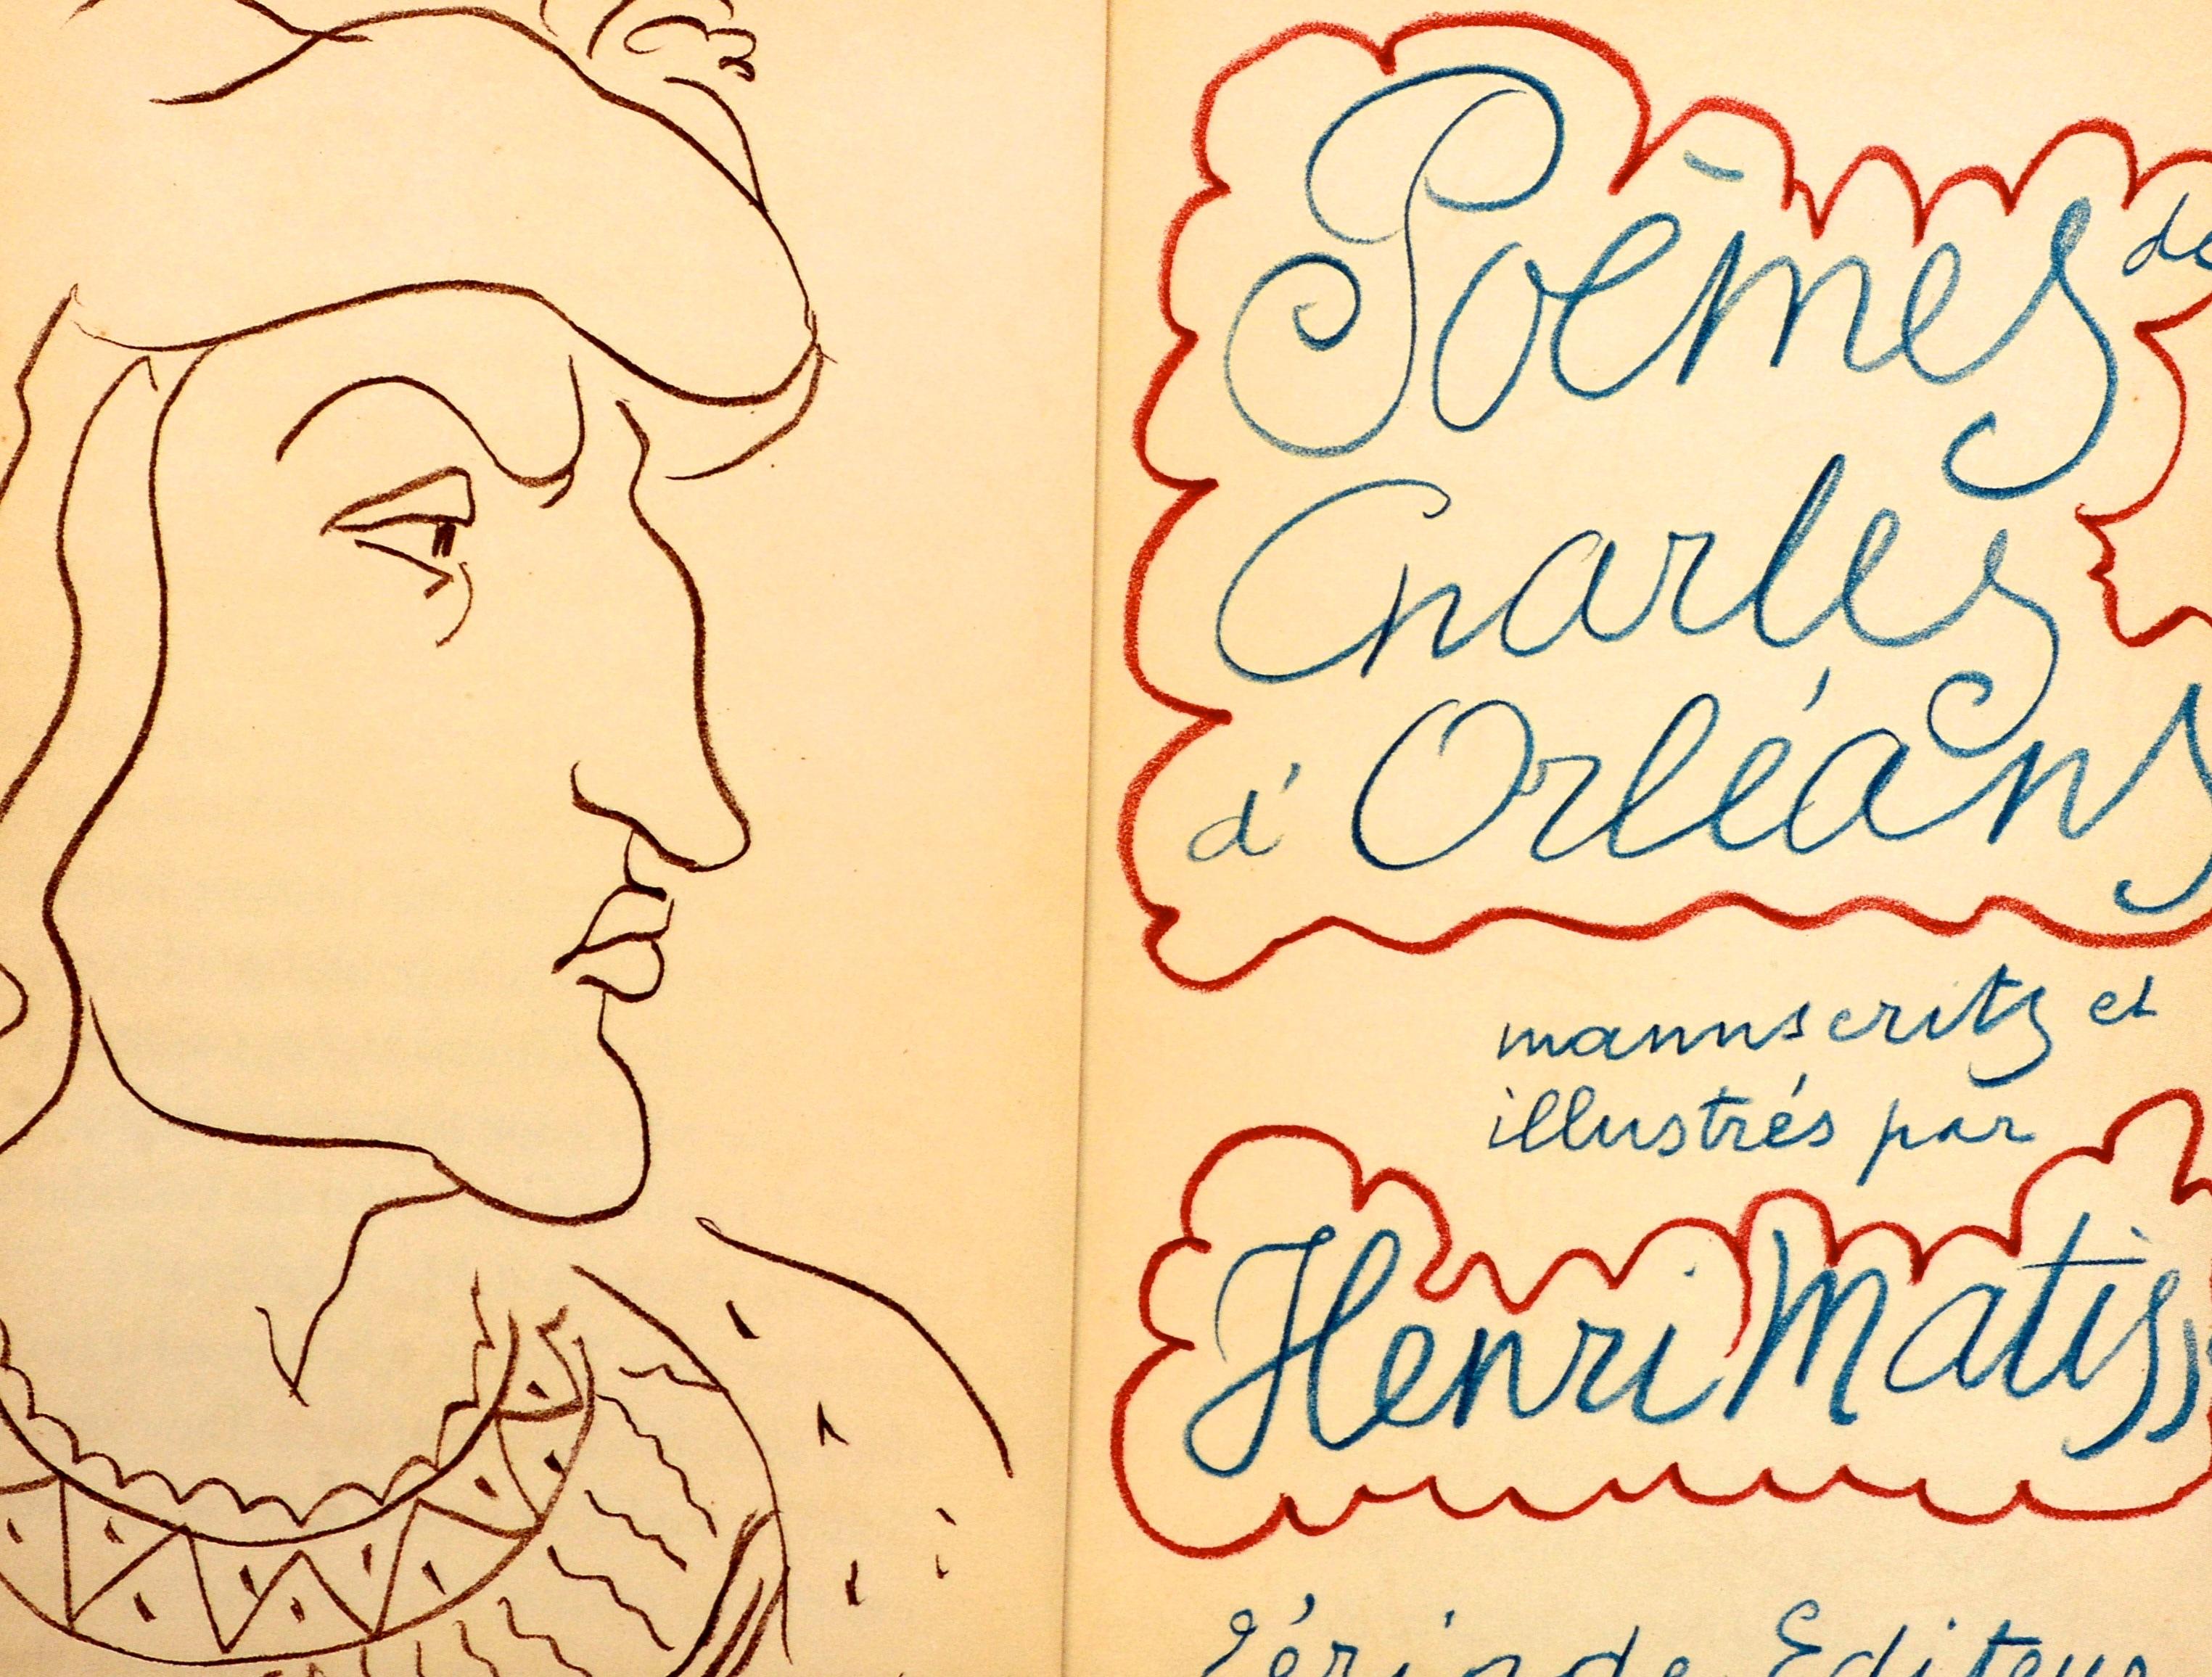 Poēmes de
Charles
d'Orléans
manuscritz et
illustrés par
Henri Matiss
Tériade Editeur